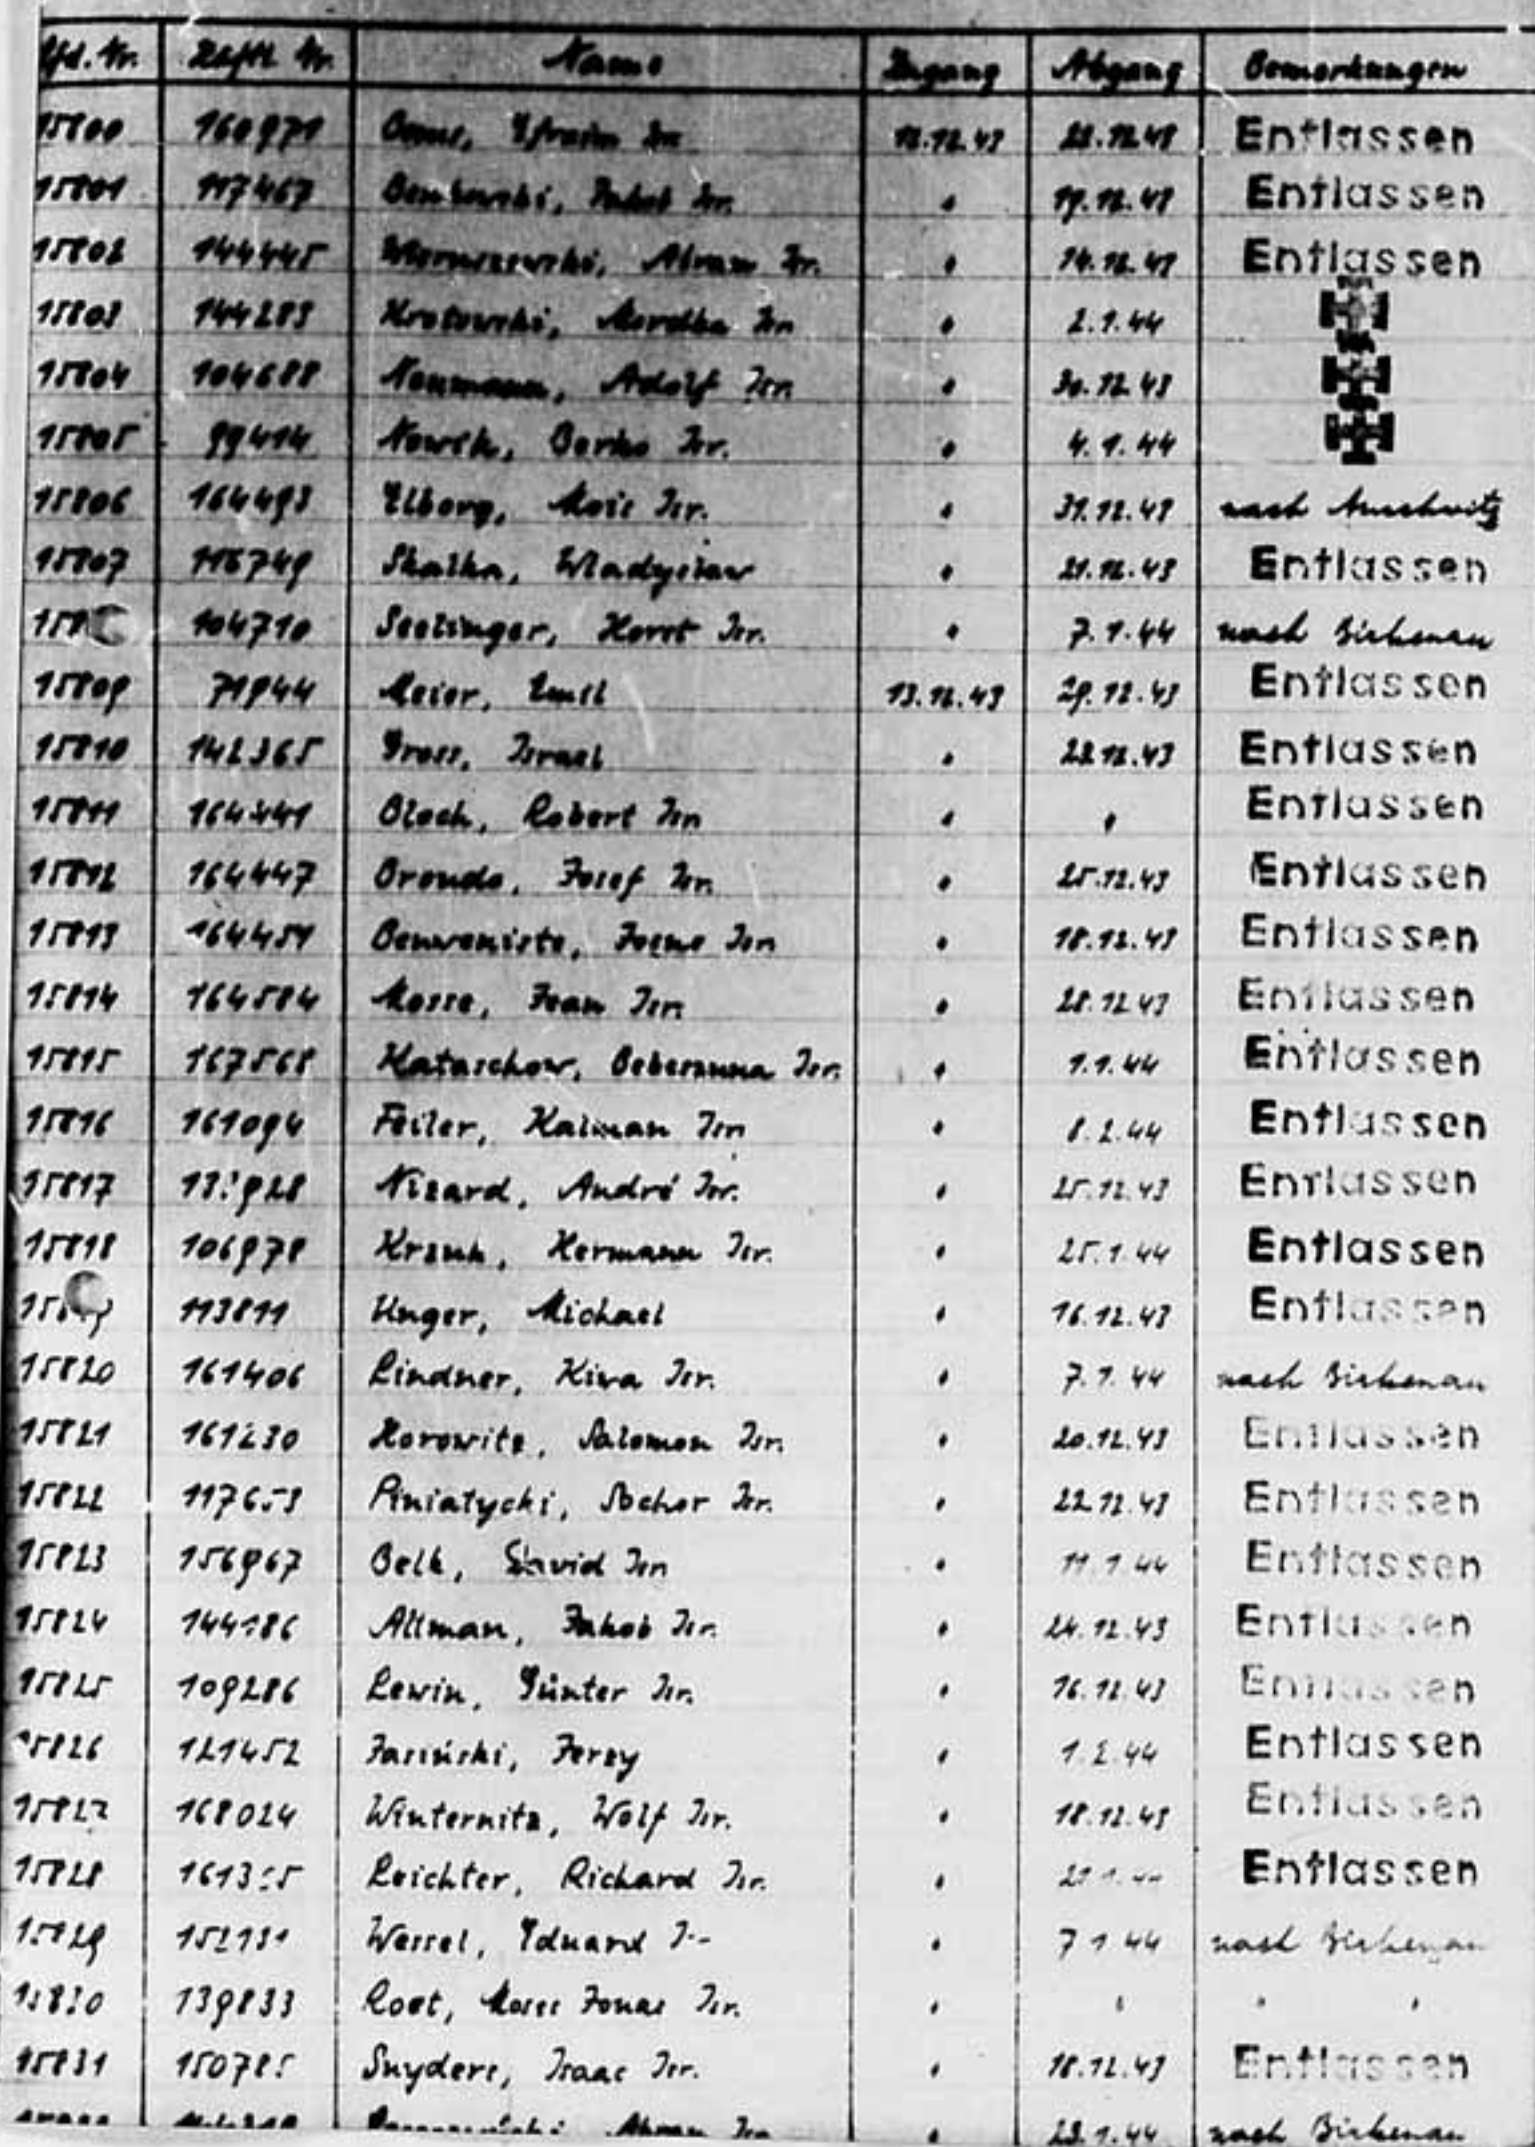 Lfd. Nr. Häftl. Nr. Name Zugang Abgang Bemerkungen
15800 160971 Isr. 12.12.43 Entlassen
15801 117467 Isr. " Entlassen
15802 144445 Abram Isr. " 14.12.43 Entlassen
15803 144283 Krotowski, Mordka Isr. " 2.1.44
15804 104688 Neumann, Adolf Isr. " 30.12.43
15805 99414 Nowik, Berko Isr. " 4.1.44
15806 164493 Elborg, Mois Isr. " 31.12.43 nach Auschwitz
15807 116749 Skalka, Wladyslaw " 21.12.43 Entlassen
104710 Seelinger, Horst Isr. " 7.1.44 nach Birkenau
15809 71944 Meier, Emil 13.12.43 29.12.43 Entlassen
15810 142365 Gross, Israel " 22.12.43 Entlassen
15811 Bloch, Robert Isr. " " Entlassen
15812 164447 Broudo, Josef Isr. " 25.12.43 Entlassen
15813 164451 Benveniste, Isr. " 18.12.43 Entlassen
15814 164584 Mosse, Jean Isr. " 28.12.43 Entlassen
15815 167568 Kataschow, Isr. " 1.1.44 Entlassen
15816 161094 Feiler, Kalman Isr. " 8.2.44 Entlassen
15817 Nizard, André Isr. " 25.12.43 Entlassen
15818 106978 Krzuk, Hermann Isr. " 25.1.44 Entlassen
113811 Unger, Michael " 16.12.43 Entlassen
15820 161406 Lindner, Kiwa Isr. " 7.1.44 nach Birkenau
15821 161230 Horowitz, Salomon Isr. " 20.12.43 Entlassen
15822 117653 Piniatycki, Sochor Isr. " 22.12.43 Entlassen
15823 156967 Belk, David Isr. " 11.1.44 Entlassen
15824 144186 Altman, Jakob Isr. " 24.12.43 Entlassen
15825 109286 Lewin, Günter Isr. " 16.12.43 Entlassen
15826 121452 Jasiński, Jerzy " 1.2.44 Entlassen
15827 168024 Winternitz, Wolf Isr. " 18.12.43 Entlassen
15828 Leichter, Richard Isr. " Entlassen
15829 Wessel, Eduard " 7.1.44 nach Birkenau
15830 139833 Roet, Moses Jonas Isr. " " " "
15831 150785 Snyders, Isaac Isr. " 18.12.43 Entlassen
" 23.1.44 nach Birkenau